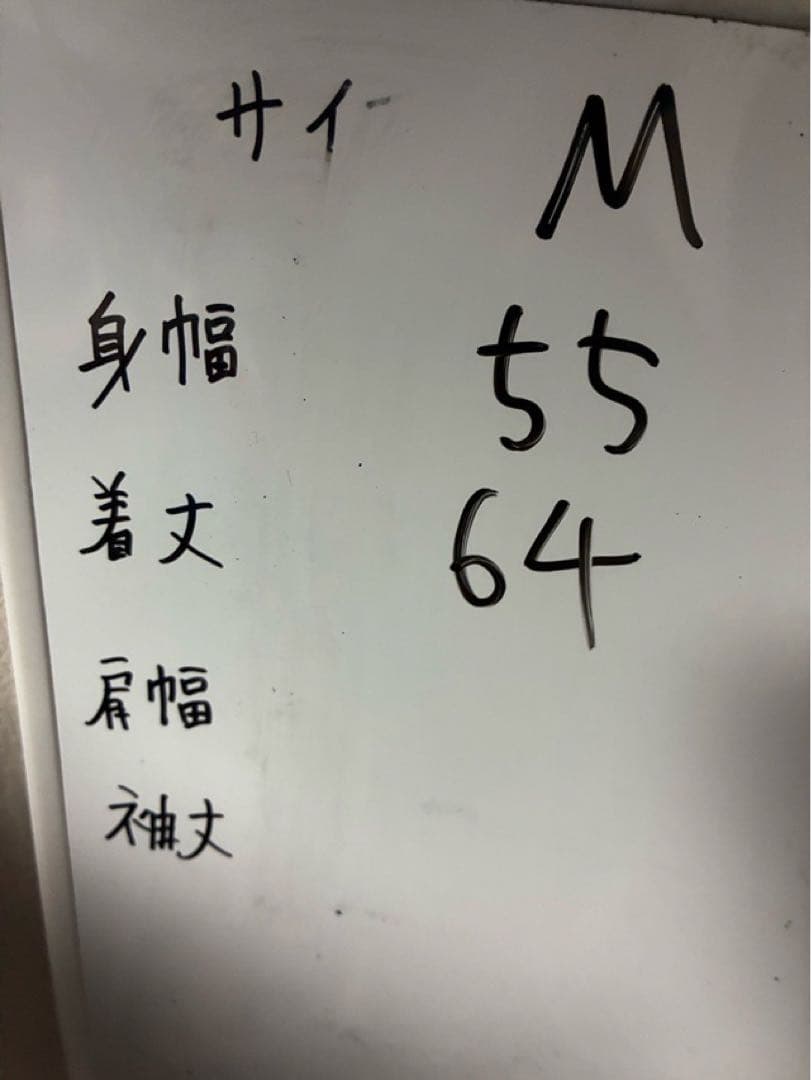 サイ M
身幅 55
着丈 64
肩幅
袖丈